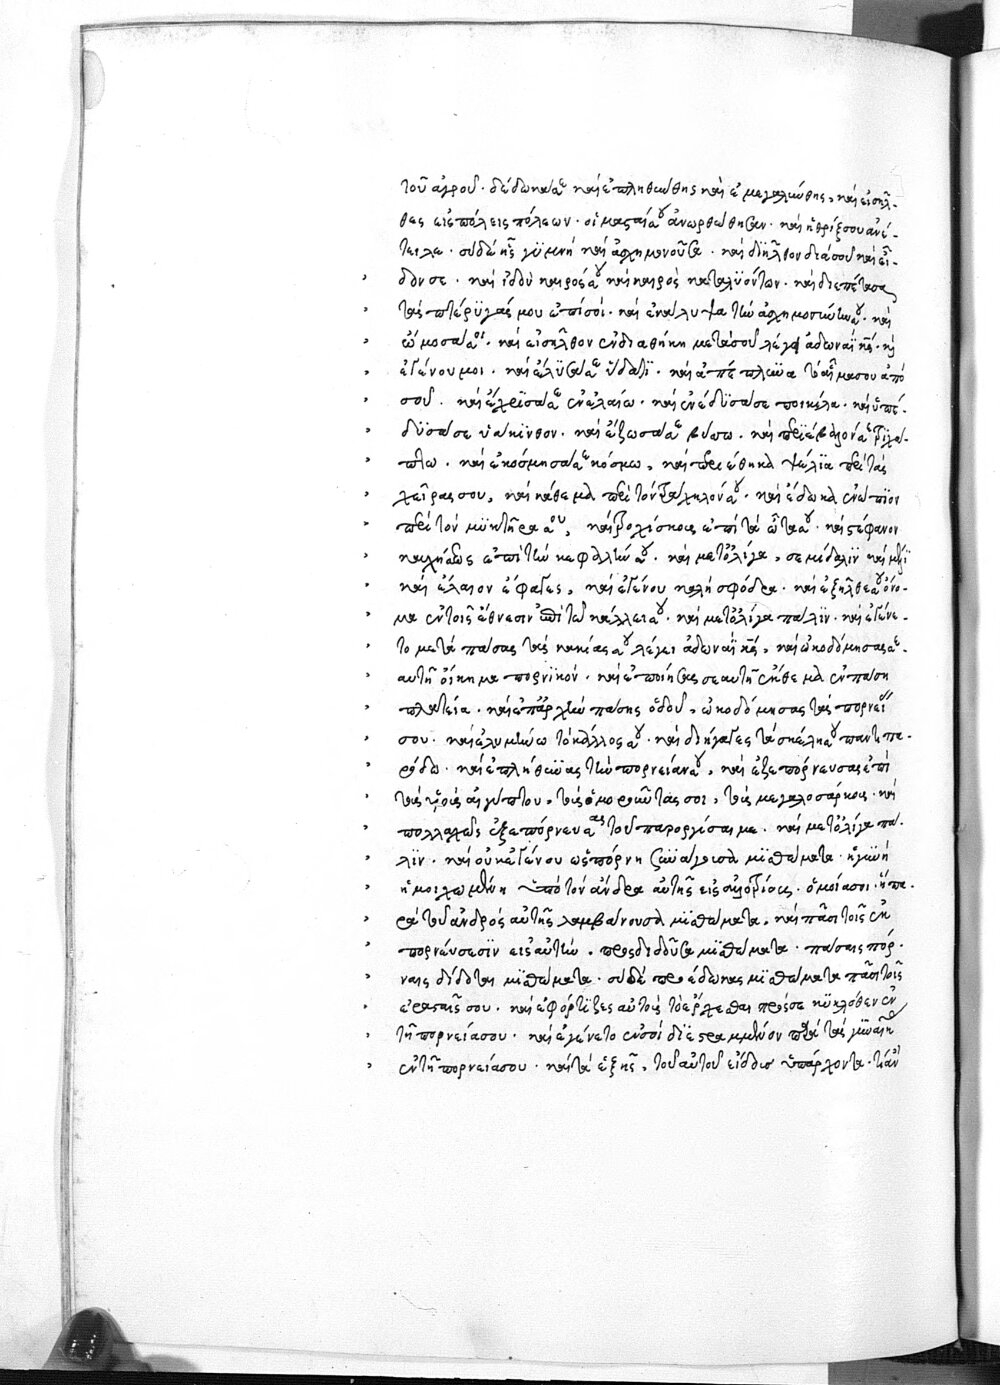 τοῦ ἀγροῦ · δέδωκά σε καὶ ἐπληθύνθης καὶ ἐμεγαλύνθης, καὶ εἰσῆλ-
θες εἰς πόλεις πόλεων · οἱ μαστοί σου ἀνωρθώθησαν · καὶ ἡ θρίξ σου ἀνέ-
τειλε · σὺ δὲ ἦς γυμνὴ καὶ ἀσχημονοῦσα · καὶ διῆλθον διὰ σοῦ καὶ εἶ-
δόν σε · καὶ ἰδοὺ καιρός σου καὶ καιρὸς καταλυόντων · καὶ διεπέτασα
τὰς πτέρυγάς μου ἐπὶ σοί · καὶ ἐκάλυψα τὴν ἀσχημοσύνην σου · καὶ
ὤμοσά σοι · καὶ εἰσῆλθον ἐν διαθήκῃ μετὰ σοῦ λέγει ἀδωναῒ κς · καὶ
ἐγένου μοι · καὶ ἔλουσά σε ὕδατι · καὶ ἀπέπλυνα τὸ αἷμά σου ἀπὸ
σοῦ · καὶ ἔχρισά σε ἐν ἐλαίω · καὶ ἐνέδυσά σε ποικίλα · καὶ ὑπέ-
δυσά σε ὑάκινθον · καὶ ἔζωσά σε βύσσω · καὶ περιέβαλόν σε τριχά-
πτω · καὶ ἐκόσμησά σε κόσμω, καὶ περιέθηκα ψέλια περὶ τὰς
χεῖράς σου, καὶ κάθεμα περὶ τὸν τράχηλόν σου · καὶ ἔδωκα ἐνώτιον
περὶ τὸν μυκτῆρά σου, καὶ τροχίσκους ἐπὶ τὰ ὦτά σου · καὶ στέφανον
καυχήσεως ἐπὶ τὴν κεφαλήν σου · καὶ μετ' ὀλίγα, σεμίδαλιν καὶ μέλι
καὶ ἔλαιον ἔφαγες, καὶ ἐγένου καλὴ σφόδρα · καὶ ἐξῆλθέ σου ὄνο-
μα ἐν τοῖς ἔθνεσιν ἐπὶ τῶ κάλλει σου · καὶ μετ' ὀλίγα πάλιν · καὶ ἐγένε-
το μετὰ πάσας τὰς κακίας σου λέγει ἀδωναῒ κς, καὶ ὠκοδόμησας σε-
αυτῆ οἴκημα πορνικόν · καὶ ἐποίησας σεαυτῆ ἔκθεμα ἐν πάση
πλατεία · καὶ ἐπ' ἀρχὴν πάσης ὁδοῦ, ὠκοδόμησας τὰς πορνείας
σου · καὶ ἐλυμήνω τὸ κάλλος σου · καὶ διήγαγες τὰ σκέλη σου παντὶ πα-
ρόδω · καὶ ἐπλήθυνας τὴν πορνείαν σου, καὶ ἐξεπόρνευσας ἐπὶ
τοὺς υἱοὺς αἰγύπτου, τοὺς ὁμοροῦντάς σοι, τοὺς μεγαλοσάρκους · καὶ
πολλαχῶς ἐξεπόρνευσας τοῦ παροργίσαι με · καὶ μετ' ὀλίγα πά-
λιν · καὶ οὐκ ἐγένου ὡς πόρνη συνάγουσα μισθώματα · ἡ γυνὴ
ἡ μοιχωμένη ὑπὸ τὸν ἄνδρα αὐτῆς εἰς ἀλλοτρίους · ὁμοία σοι · ἡ πα-
ρὰ τοῦ ἀνδρὸς αὐτῆς λαμβάνουσα μισθώματα, καὶ πᾶσι τοῖς ἐκ
πορνεύσασιν εἰς αὐτὴν, προσδιδοῦσα μισθώματα · πάσαις πόρ-
ναις δίδοται μισθώματα · σὺ δὲ προέδωκας μισθώματα πᾶσι τοῖς
ἐρασταῖς σου · καὶ ἐφόρτιζες αὐτοὺς τοῦ ἔρχεσθαι πρός σε κυκλόθεν ἐν
τῆ πορνεία σου · καὶ ἐγένετο ἐν σοὶ διεστραμμένον παρὰ τὰς γυναῖκας
ἐν τῆ πορνεία σου · καὶ τὰ ἑξῆς, τοῦ αὐτοῦ εἴδους ὑπάρχοντα · τί ἂν